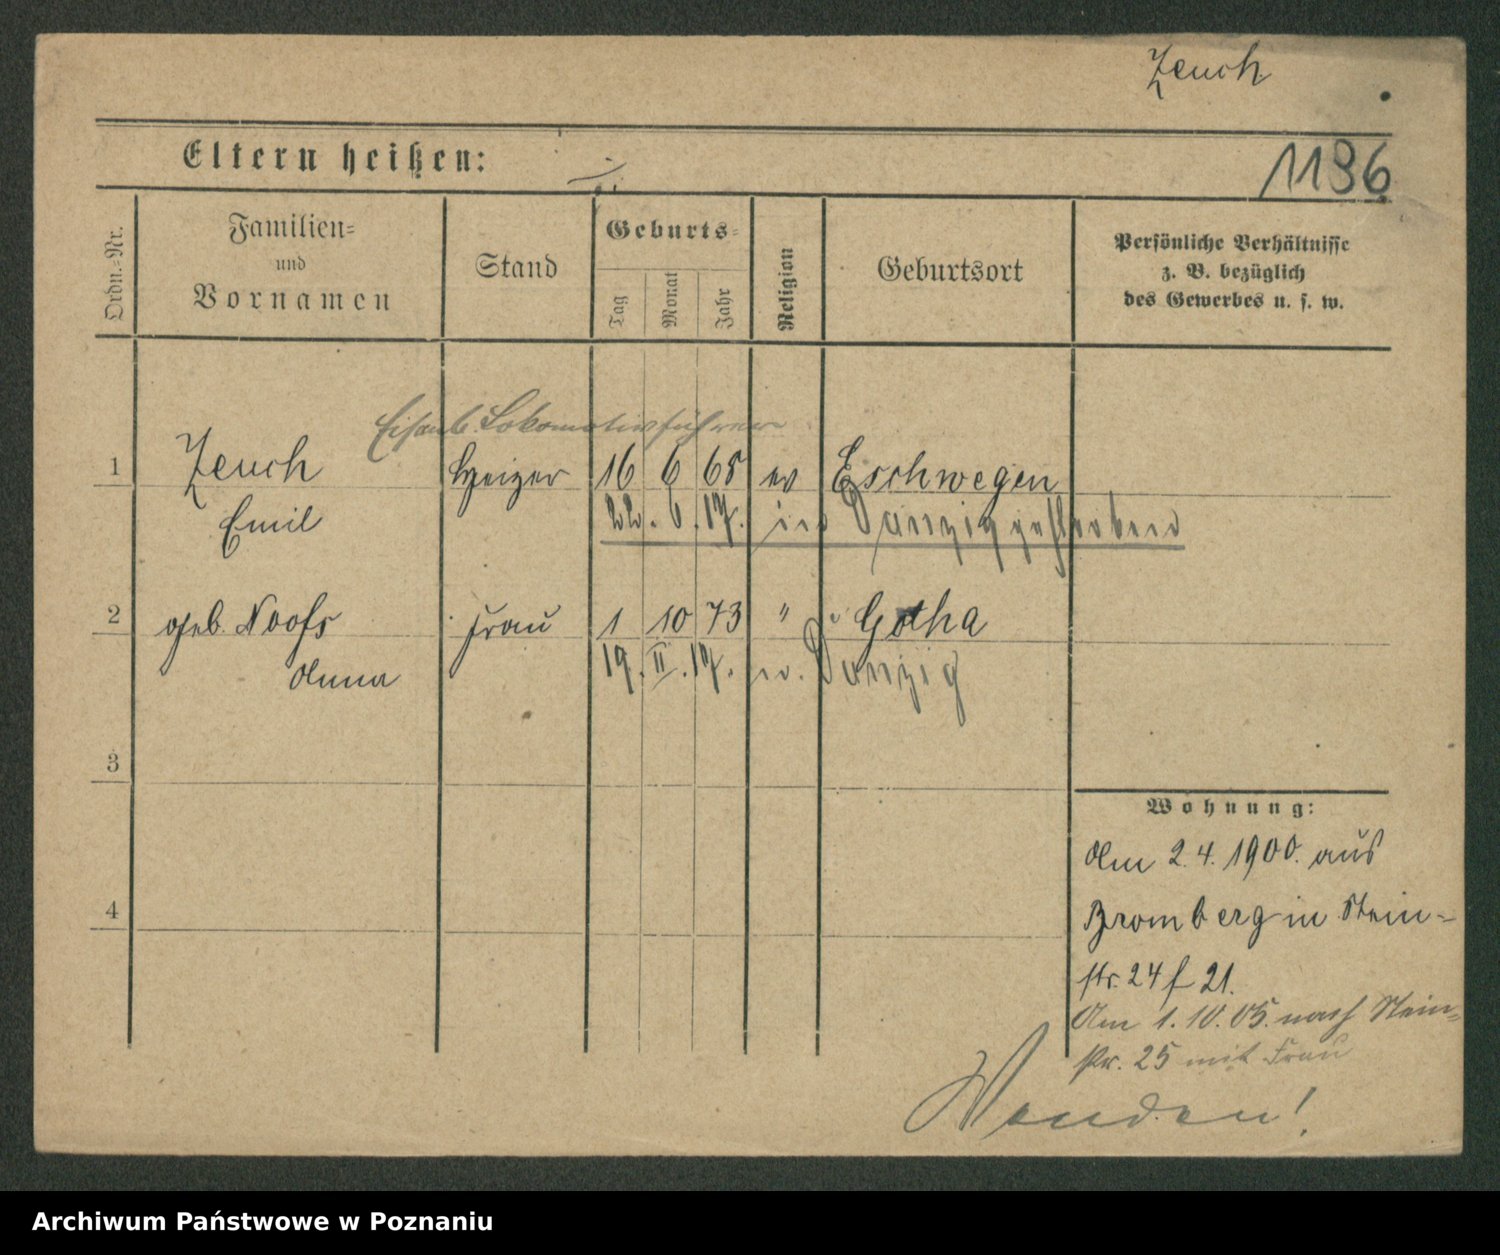 Zeuch
Eltern heißen:
1196
Ordn.-Nr.
Familien-
und
Vornamen
Stand
Geburts-
Tag
Monat
Jahr
Religion
Geburtsort
Persönliche Verhältnisse
z. B. bezüglich
des Gewerbes u. s. w.
Eisenb. Lokomotivführer
1 Zeuch Heizer 16 6 65 ev Eschwegen
Emil 22. 6. 17. in Danzig gestorben
2 geb. Noofs Frau 1 10 73 " Gotha
Anna 19. II. 17. n. Danzig
3
Wohnung:
Am 2.4. 1900. aus
Bromberg in Stein-
str. 24 f 21.
Am 1. 10. 05. nach Stein-
str. 25 mit Frau
4
Wenden!
Archiwum Państwowe w Poznaniu